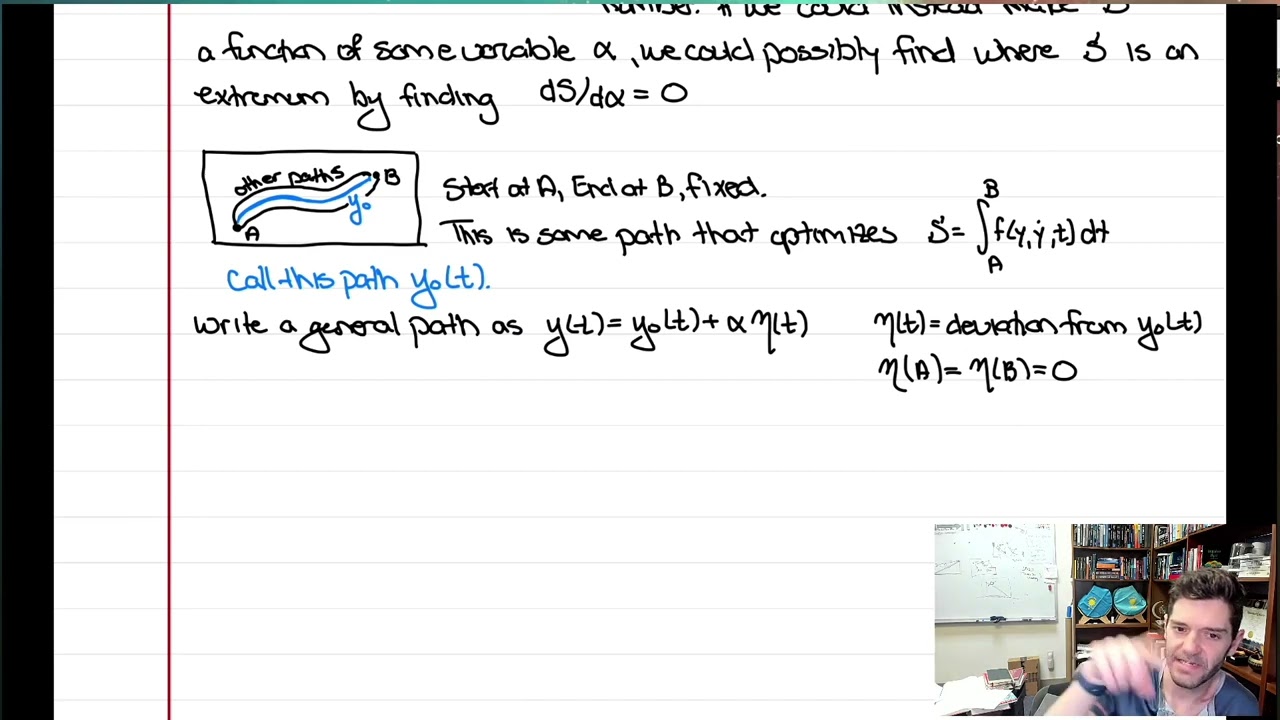 number. If we could instead make S
a function of some variable α, we could possibly find where S is an
extremum by finding dS/dα = 0
other paths B
y₀
A
Start at A, End at B, fixed.
This is some path that optimizes S = ∫_A^B f(y, ẏ, t) dt
Call this path y₀(t).
Write a general path as y(t) = y₀(t) + α η(t) η(t) = deviation from y₀(t)
η(A) = η(B) = 0